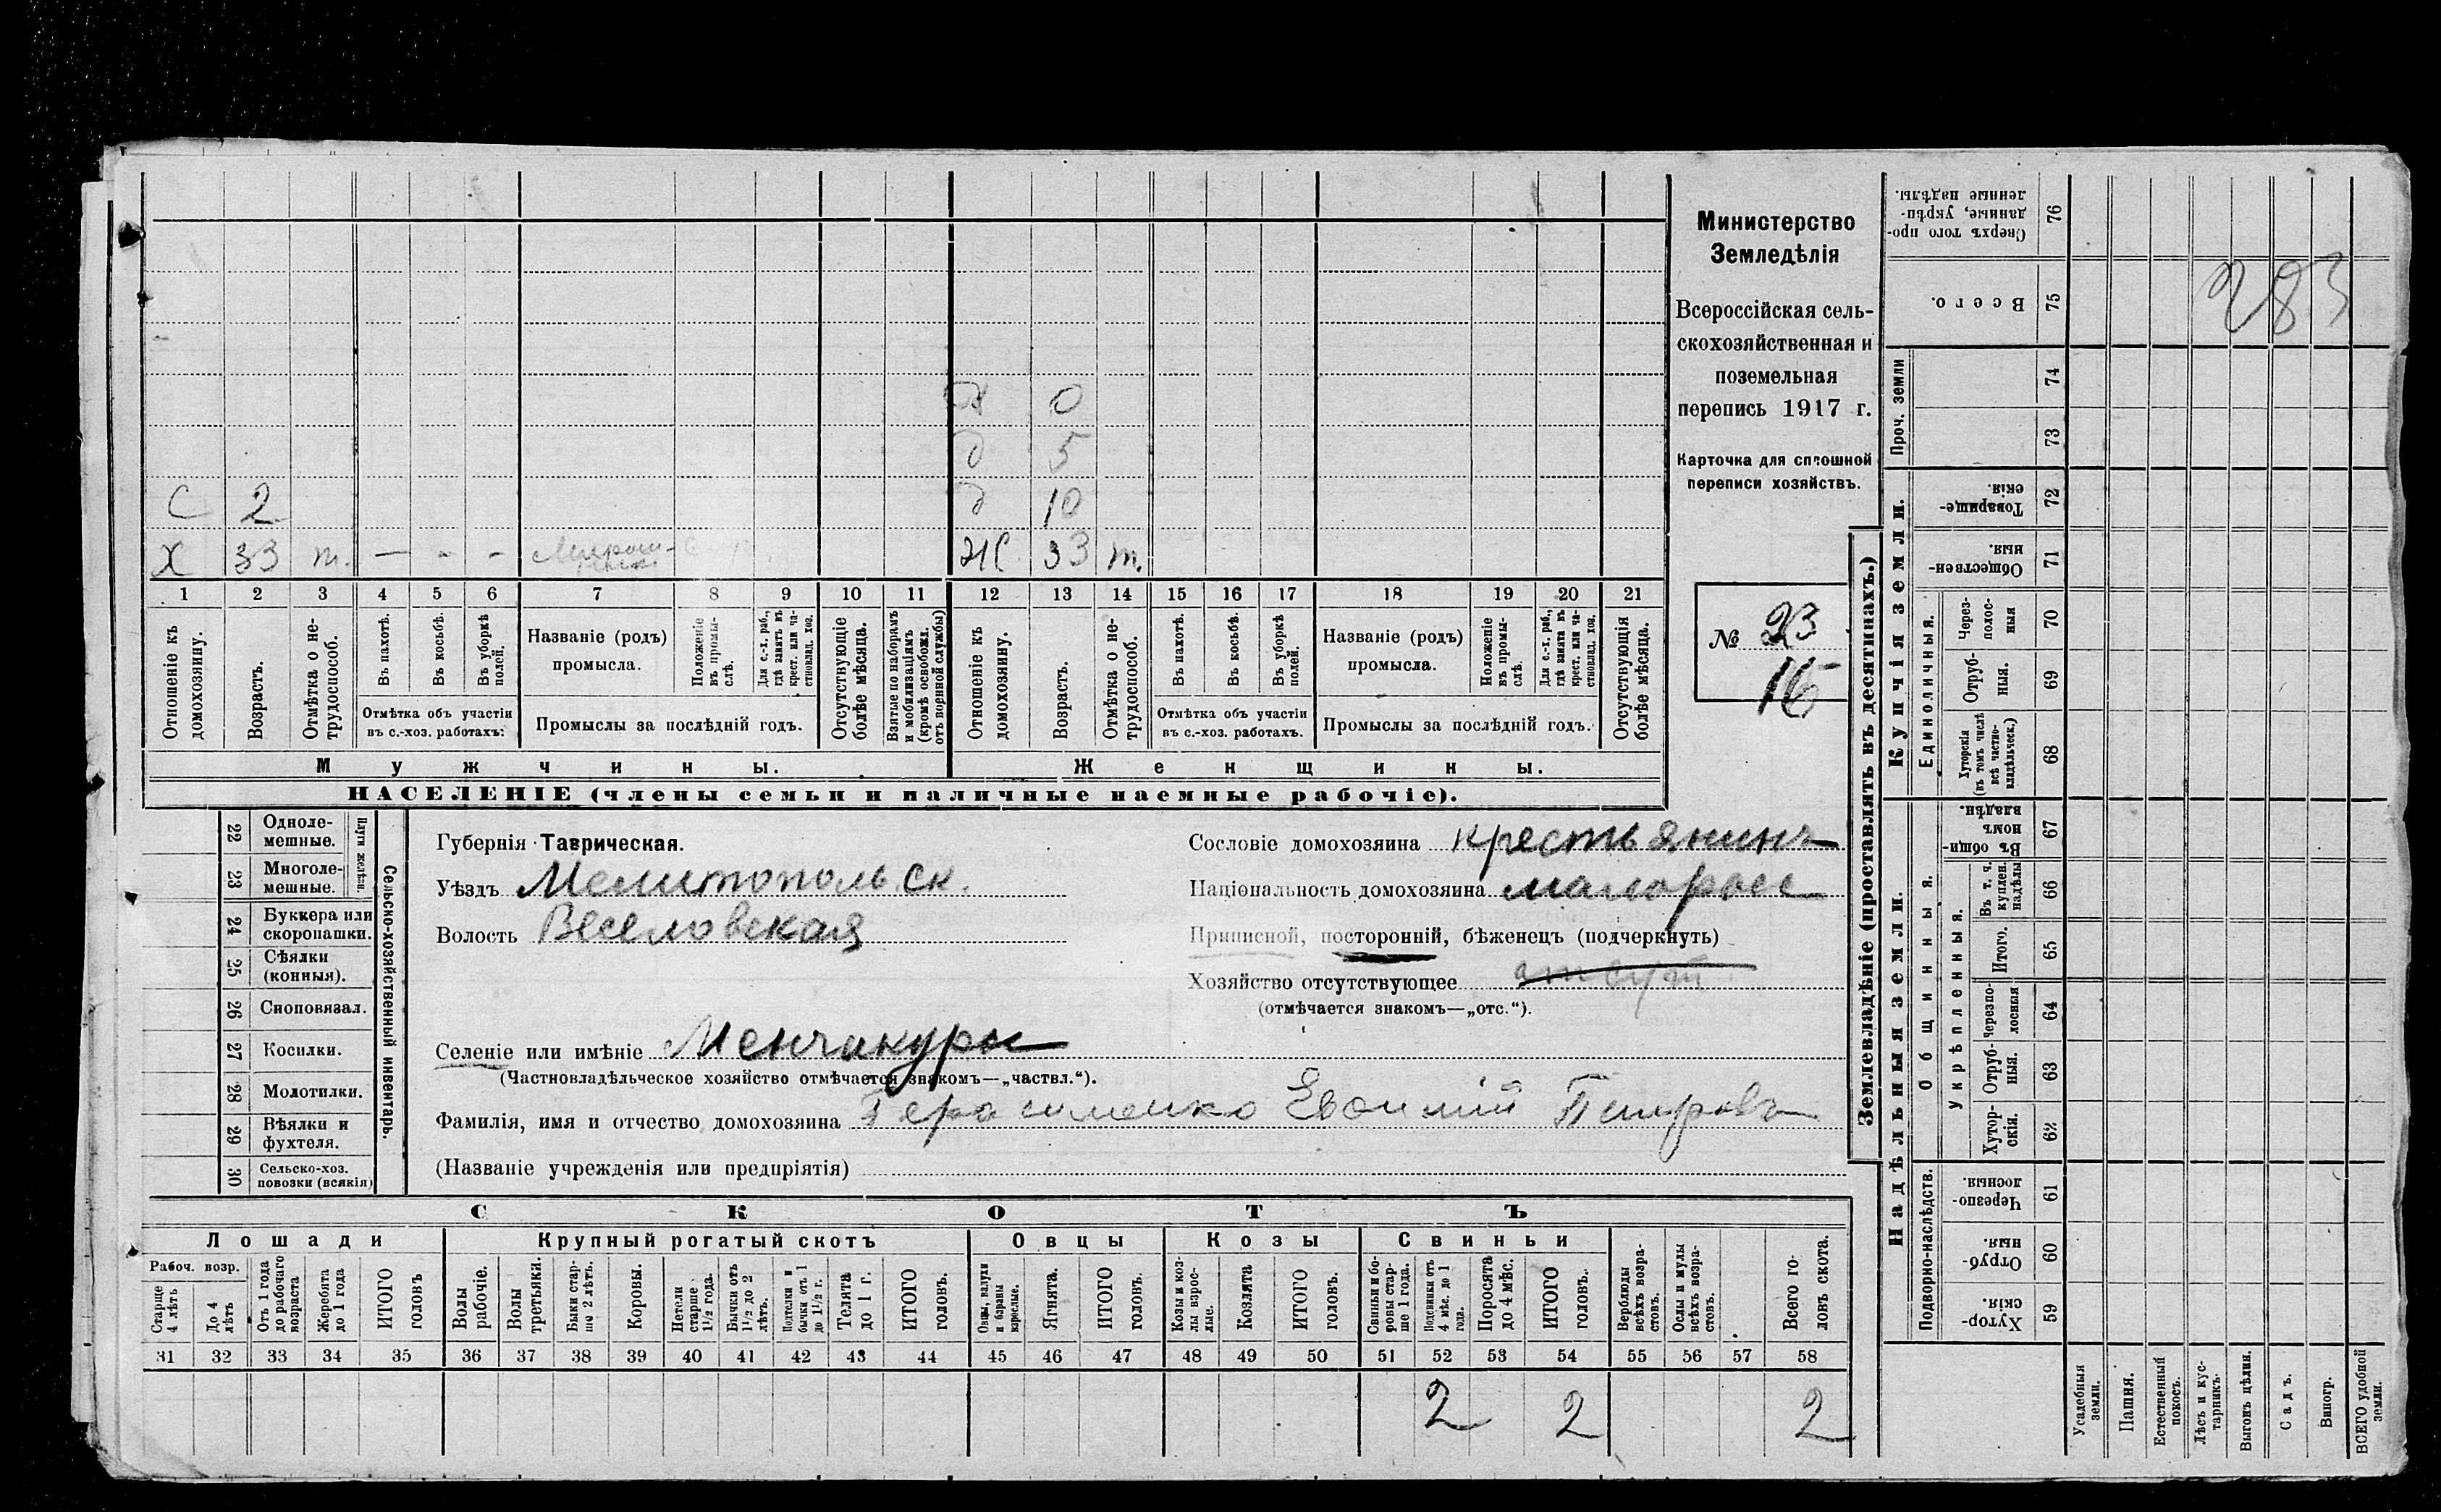 Министерство
Земледѣлія
Всероссійская сель-
скохозяйственная и
поземельная
перепись 1917 г.
Карточка для сплошной
переписи хозяйствъ.
№ 23
16
283
д 0
д 5
С 2 д 10
Х 33 т. — - - Ж 33 т.
1 2 3 4 5 6 7 8 9 10 11 12 13 14 15 16 17 18 19 20 21
Отношеніе къ домохозяину.
Возрастъ.
Отмѣтка о не-трудоспособ.
Въ пахотѣ.
Въ косьбѣ.
Въ уборкѣ полей.
Отмѣтка объ участіи
въ с.-хоз. работахъ:
Названіе (родъ)
промысла.
Положеніе въ промы-слѣ.
Для с.-х. раб., гдѣ занятъ въ крест. или ча-стновлад. хоз.
Промыслы за послѣдній годъ.
Отсутствующіе болѣе мѣсяца.
Взятые по наборамъ и мобилизаціямъ (кромѣ освобожд. отъ военной службы)
Отношеніе къ домохозяину.
Возрастъ.
Отмѣтка о не-трудоспособ.
Въ пахотѣ.
Въ косьбѣ.
Въ уборкѣ полей.
Отмѣтка объ участіи
въ с.-хоз. работахъ.
Названіе (родъ)
промысла.
Положеніе въ промы-слѣ.
Для с.-х. раб., гдѣ занята въ крест. или ча-стновлад. хоз.
Промыслы за послѣдній годъ.
Отсутствующія болѣе мѣсяца.
Мужчины. Женщины.
НАСЕЛЕНІЕ (члены семьи и наличные наемные рабочіе).
Сельско-хозяйственный инвентарь.
Плуги желѣзн.
22 Одноле-мешные.
23 Многоле-мешные.
24 Буккера или скоропашки.
25 Сѣялки (конныя).
26 Сноповязал.
27 Косилки.
28 Молотилки.
29 Вѣялки и фухтеля.
30 Сельско-хоз. повозки (всякія)
Губернія Таврическая.
Уѣздъ Мелитопольск.
Волость Веселовская
Сословіе домохозяина крестьянинъ
Національность домохозяина малоросс
Приписной, посторонній, бѣженецъ (подчеркнуть)
Хозяйство отсутствующее отсут
(отмѣчается знакомъ—„отс.“).
Селеніе или имѣніе Менчикуры
(Частновладѣльческое хозяйство отмѣчается знакомъ—„частвл.“).
Фамилія, имя и отчество домохозяина Герасименко Евфимій Петровъ
(Названіе учрежденія или предпріятія)
СКОТЪ
Лошади Крупный рогатый скотъ Овцы Козы Свиньи
Рабоч. возр.
Старше 4 лѣтъ
До 4 лѣтъ
Отъ 1 года до рабочаго возраста
Жеребята до 1 года
ИТОГО головъ
Волы рабочіе.
Волы третьяки.
Быки стар-ше 2 лѣтъ.
Коровы.
Нетели старше 1½ года.
Бычки отъ 1½ до 2 лѣтъ.
Подтелки и бычки отъ 1 до 1½ г.
Телята до 1 г.
ИТОГО головъ.
Овцы, валухи и бараны взрослые.
Ягнята.
ИТОГО головъ.
Козы и коз-лы взрос-лые.
Козлята
ИТОГО головъ.
Свиньи и бо-ровы стар-ше 1 года.
Подсвинки отъ 4 мѣс. до 1 года.
Поросята до 4 мѣс.
ИТОГО головъ.
Верблюды всѣхъ возра-стовъ.
Ослы и мулы всѣхъ возра-стовъ.
Всего го-ловъ скота.
31 32 33 34 35 36 37 38 39 40 41 42 43 44 45 46 47 48 49 50 51 52 53 54 55 56 57 58
2 2 2
Землевладѣніе (проставлять въ десятинахъ.)
Надѣльныя земли.
Купчія земли.
Проч. земли
Подворно-наслѣдств.
Общинныя.
Укрѣпленныя.
Единоличныя.
Сверхъ того про-данные, укрѣп-ленные надѣлы. 76
Всего. 75
74
73
Товарище-скія. 72
Обществен-ныя. 71
Через-полос-ныя 70
Отруб-ныя. 69
Хуторскія (въ томъ числѣ всѣ частно-владѣльческ.) 68
Въ общи-номъ владѣн. 67
Въ т. ч. куплен. надѣлы 66
Итого. 65
Черезпо-лосныя 64
Отруб-ныя. 63
Хутор-скія. 62
Черезпо-лосныя. 61
Отруб-ныя. 60
Хутор-скія. 59
Усадебныя земли.
Пашня.
Естественный покосъ.
Лѣсъ и кус-тарникъ.
Выгонъ цѣлин.
Садъ.
Виногр.
ВСЕГО удобной земли.